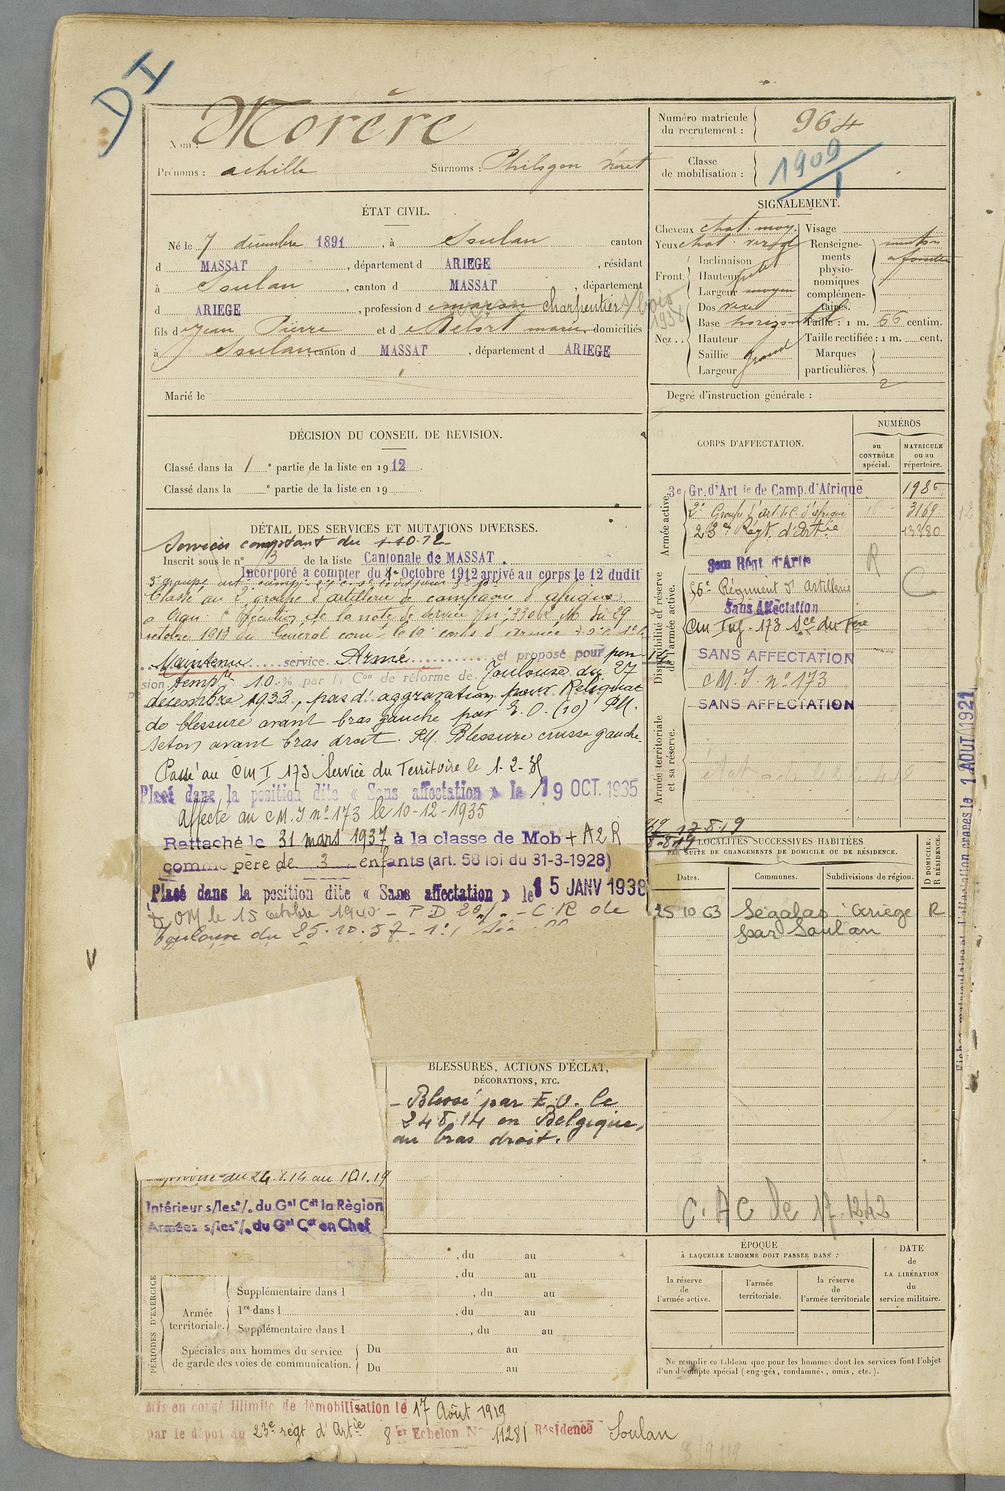 DI
Nom : Morère
Prénoms : achille Surnoms : Philogon
Numéro matricule du recrutement : 964
Classe de mobilisation : 1909 / 1
ÉTAT CIVIL.
Né le 7 décembre 1891, à Soulan canton
d MASSAT, département d ARIEGE, résidant
à Soulan, canton d MASSAT, département
d ARIEGE, profession d maçon charpentier s/bois 1938
fils d Jean Pierre et d marie domiciliés
à Soulan canton d MASSAT, département d ARIEGE
Marié le
SIGNALEMENT.
Cheveux chat. moy.
Yeux chat. verd
Front.
Inclinaison
Hauteur petit
Largeur moyen
Nez..
Dos rexe
Base horizontal
Hauteur
Saillie grand
Largeur
Visage
Renseignements physionomiques complémentaires.
Taille : 1 m. 66 centim.
Taille rectifiée : 1 m. cent.
Marques particulières.
Degré d'instruction générale : 2
DÉCISION DU CONSEIL DE REVISION.
Classé dans la 1e partie de la liste en 1912.
Classé dans la e partie de la liste en 19
DÉTAIL DES SERVICES ET MUTATIONS DIVERSES.
Services comptant du 1-10-12
Inscrit sous le n° 13 de la liste Cantonale de MASSAT.
Incorporé a compter du 8e Octobre 1912 arrivé au corps le 12 dudit
Classé au 2e groupe d'artillerie de campagne d'afrique
exécution de la note de service n: 3306 du 29
octobre 1913 du Général
Maintenu service Armé et proposé pour pen
sion temp. 10 % par la Con de réforme de Toulouse du 27
décembre 1933, pas d'aggravation pour Reliquat
de blessure avant bras gauche par E.O. (10) Pll.
Seton avant bras droit. Pll. Blessure cuisse gauche
Passé au CM I 173 Service du Territoire le 1-2-
Placé dans la position dite « Sans affectation » le 19 OCT. 1935
affecté au C M. I n° 173 le 10-12-1935
Rattaché le 31 mars 1937 à la classe de Mob + A2R
comme père de 3 enfants (art. 58 loi du 31-3-1928)
Placé dans la position dite « Sans affectation » le 15 JANV 1938
OM le 15 octobre 1940 - P D 20% - C.R de
Toulouse du 25.10.57
CORPS D'AFFECTATION.
NUMÉROS
au CONTRÔLE spécial.
MATRICULE ou au répertoire.
Armée active.
3e Gr. d'Art ie de Camp. d'Afrique 198
2e Groupe d'art d'afrique 3169
23e Régt. d'Artie 13380
Disponibilité et réserve de l'armée active.
Régt d'Artie
56e Régiment d'artillerie
Sans Affectation
Cm Inf. 173 Sce du Tre
SANS AFFECTATION
C M. I n° 173
SANS AFFECTATION
R
C
Armée territoriale et sa réserve.
17.8.19
LOCALITÉS SUCCESSIVES HABITÉES
PAR SUITE DE CHANGEMENTS DE DOMICILE OU DE RÉSIDENCE.
Dates.
Communes.
Subdivisions de région.
D DOMICILE. R RÉSIDENCE.
25 10 63 Ségalas par Soulan ariège R
C. AC de 17-12-42
1 AOUT 1921
BLESSURES, ACTIONS D'ÉCLAT,
DÉCORATIONS, ETC.
- Blessé par E.O. le
24.8.14 en Belgique,
au bras droit.
du 24.8.14 au 10.1.19
Intérieur s/les°/. du Gal Cdt la Région
Armées s/les°/. du Gal Cdt en Chef
, du au
, du au
PÉRIODES D'EXERCICE
Armée territoriale.
Supplémentaire dans l , du au
1re dans l , du au
Supplémentaire dans l , du au
Spéciales aux hommes du service de garde des voies de communication.
Du au
Du au
ÉPOQUE
À LAQUELLE L'HOMME DOIT PASSER DANS :
la réserve de l'armée active.
l'armée territoriale.
la réserve de l'armée territoriale
DATE de LA LIBÉRATION du service militaire.
Ne remplir ce tableau que pour les hommes dont les services font l'objet
d'un décompte spécial (engagés, condamnés, omis, etc.).
Mis en congé illimité de démobilisation le 17 Août 1919
par le dépôt du 23e régt d'Artie 8e Echelon N° 11281 Résidence Soulan